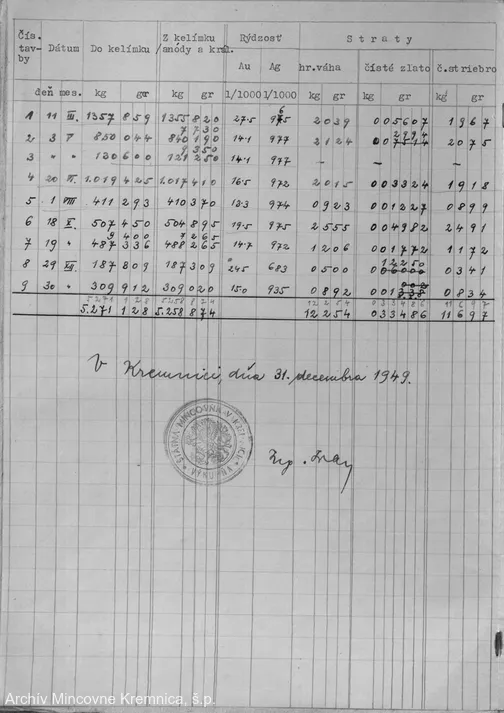 Čís. tav- by Dátum Do kelímku Z kelímku /anódy a krát. Rýdzosť S t r a t y
Au Ag hr.váha čisté zlato č.striebro
deň mes. kg gr kg gr 1/1000 1/1000 kg gr kg gr kg gr
1 11 III. 1357 859 1355 820 27·5 975 2 039 0 05607 1 967
2 3 V 850 044 840 190 14·1 977 2 124 2 075
3 " " 130 600 121 250 14·1 977 — —
4 20 VI. 1.019 425 1.017 410 16·5 972 2 015 0 03324 1 918
5 1 VIII 411 293 410 370 13·3 974 0 923 0 01227 0 899
6 18 X. 507 450 504 895 19·5 975 2 555 0 04982 2 491
7 19 " 487 336 488 265 14·7 972 1 206 0 01772 1 172
8 29 XII. 187 809 187 309 245 683 0 500 12250 0 341
9 30 " 309 912 309 020 150 935 0 892 0 834
5.271 128 5.258 874 12 254 0 33 486 11 697
5.271 128 5.258 874 12 254 0 33 486 11 697
V Kremnici, dňa 31. decembra 1949.
ŠTÁTNA MINCOVŇA V KREMNICI
Archív Mincovne Kremnica, š.p.